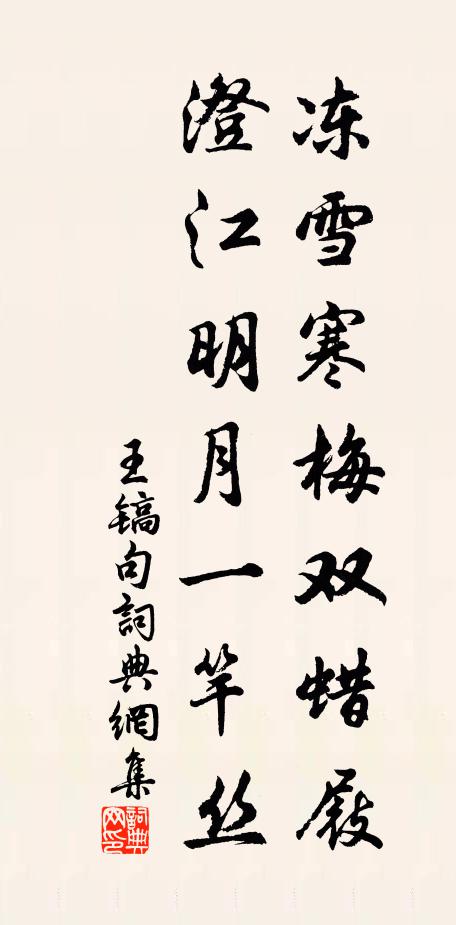 冻雪寒梅双蜡屐
澄江明月一竿丝
王镐句詞典網集
詞典
网印